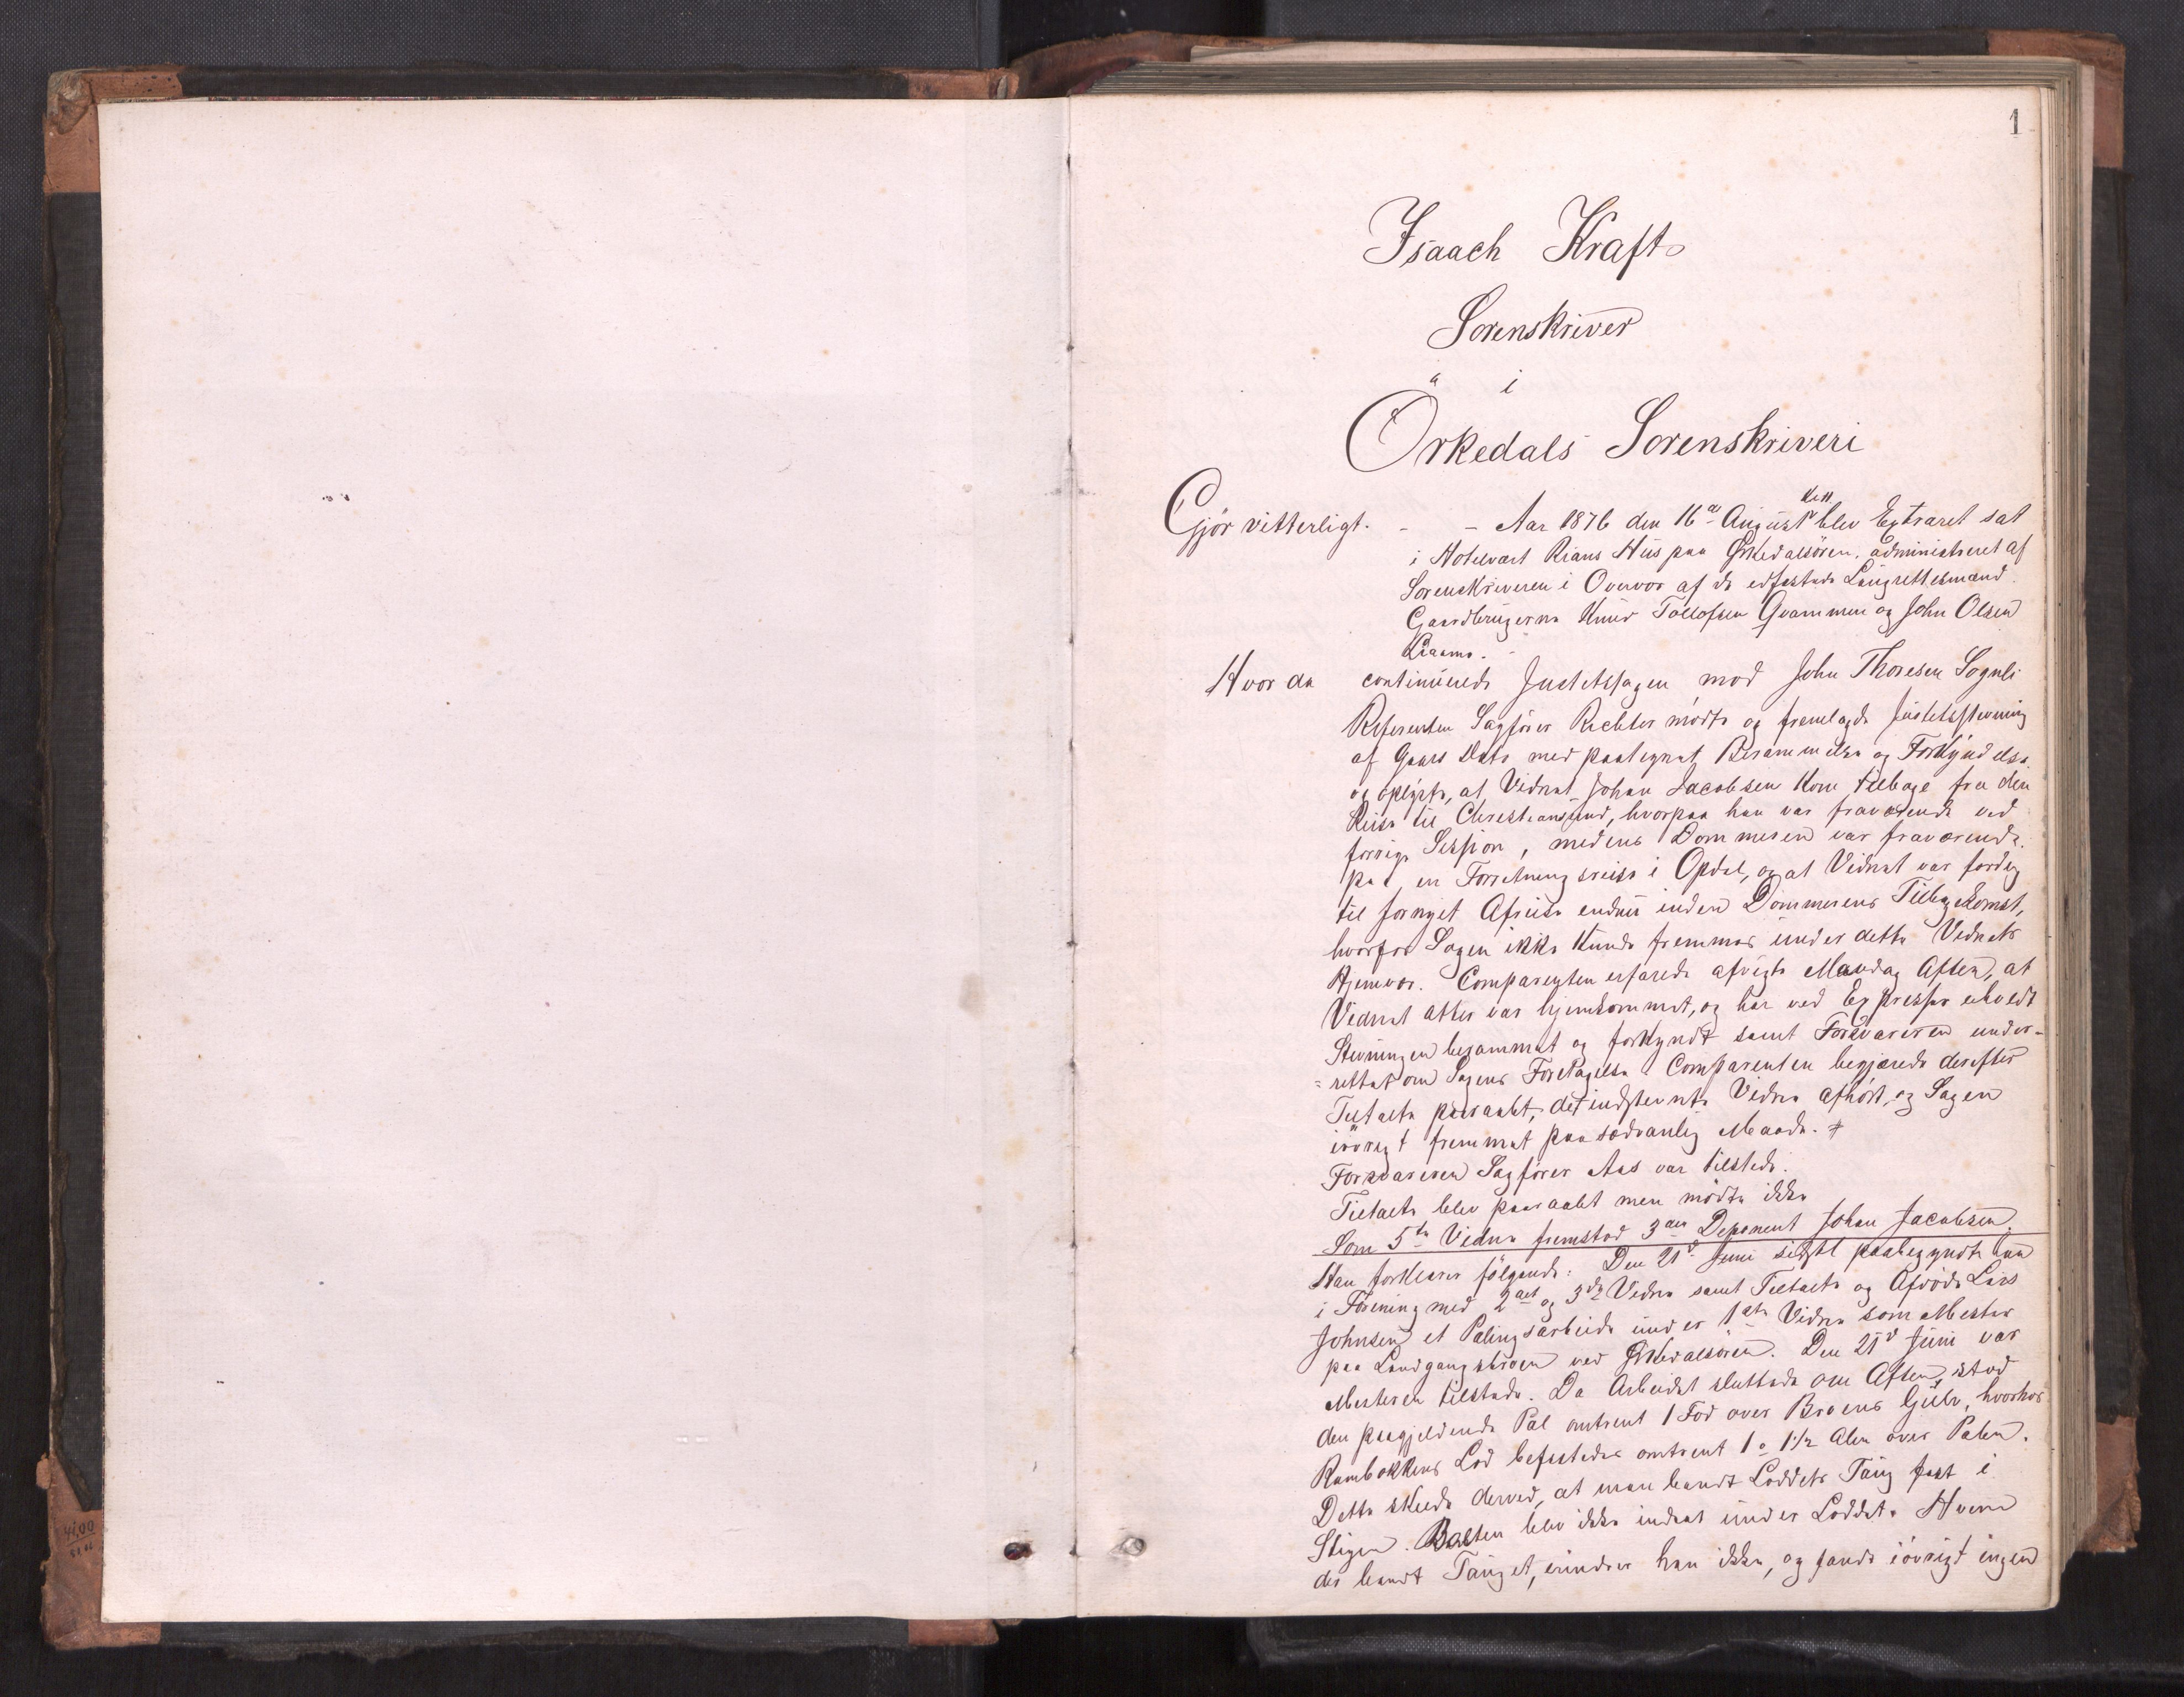 1
Isaach Kraft
Sorenskriver
i
Örkedals Sorenskriveri
Gjör vitterligt. - - Aar 1876 den 16de August blev Extraret sat
i Hotelvært Rians Hus paa Örkedalsören, administreret af
Sorenskriveren i Overvær af de edfæstede Laugrettesmænd
Gaardbrugerne Knud Tollofsen Qvammen og John Olsen
Hvor da continuerede Justitssagen mod John Thoresen Sognli
Referenten Sagförer Richter mödte og fremlagde Justitsstevning
af Gaars Dato med paategnet Berammelse og Forkyndelse
og oplyste, at Vidnet Johan Jacobsen kom tilbage fra den
Reise til Christiansund, hvorpaa han var fraværende ved
forrige Session, medens Dommeren var fraværende
paa en Forretningsreise i Opdal, og at Vidnet var færdig
til fornyet Afreise endnu inden Dommerens Tilbagekomst,
hvorfor Sagen ikke kunde fremmes under dette Vidnets
Hjemvær. Comparenten erfarede afvigte Mandag Aften, at
Vidnet atter var hjemkommet, og har ved Expresser erholdt
Stevningen berammet og forkyndt samt Forsvareren under-
=rettet om Sagens Foretagelse. Comparenten begjærede derefter
Tiltalte paaraabt, det indstevnte Vidne afhört, og Sagen
iövrigt fremmet paa sædvanlig Maade. #
Forsvareren Sagförer Aas var tilstede.
Tiltalte blev paaraabt men mödte ikke
Som 5te Vidne fremstod 3die Deponent Johan Jacobsen.
Han forklarer fölgende: Den 21d Juni sidstl paabegyndte han
i Forening med 2det og 3die Vidne samt Tiltalte og Afdöde Lars
Johnsen et Pælingsarbeide under 1ste Vidne som Mester
paa Landgangsbroen ved Örkedalsören. Den 21d Juni var
Mesteren tilstede. Da Arbeidet sluttede om Aften, stod
den paagjeldende Pæl omtrent 1 Fod over Broens Gulv, hvorhos
Rambukkens Lod befæstedes omtrent 1 a 1 1/2 Alen over Pælen.
Dette skede derved, at man bandt Loddets Taug fast i
Stigen. Bolten blev ikke indsat under Loddet. Hvem
der bandt Tauget, erindrer han ikke, og fandt iövrigt ingen